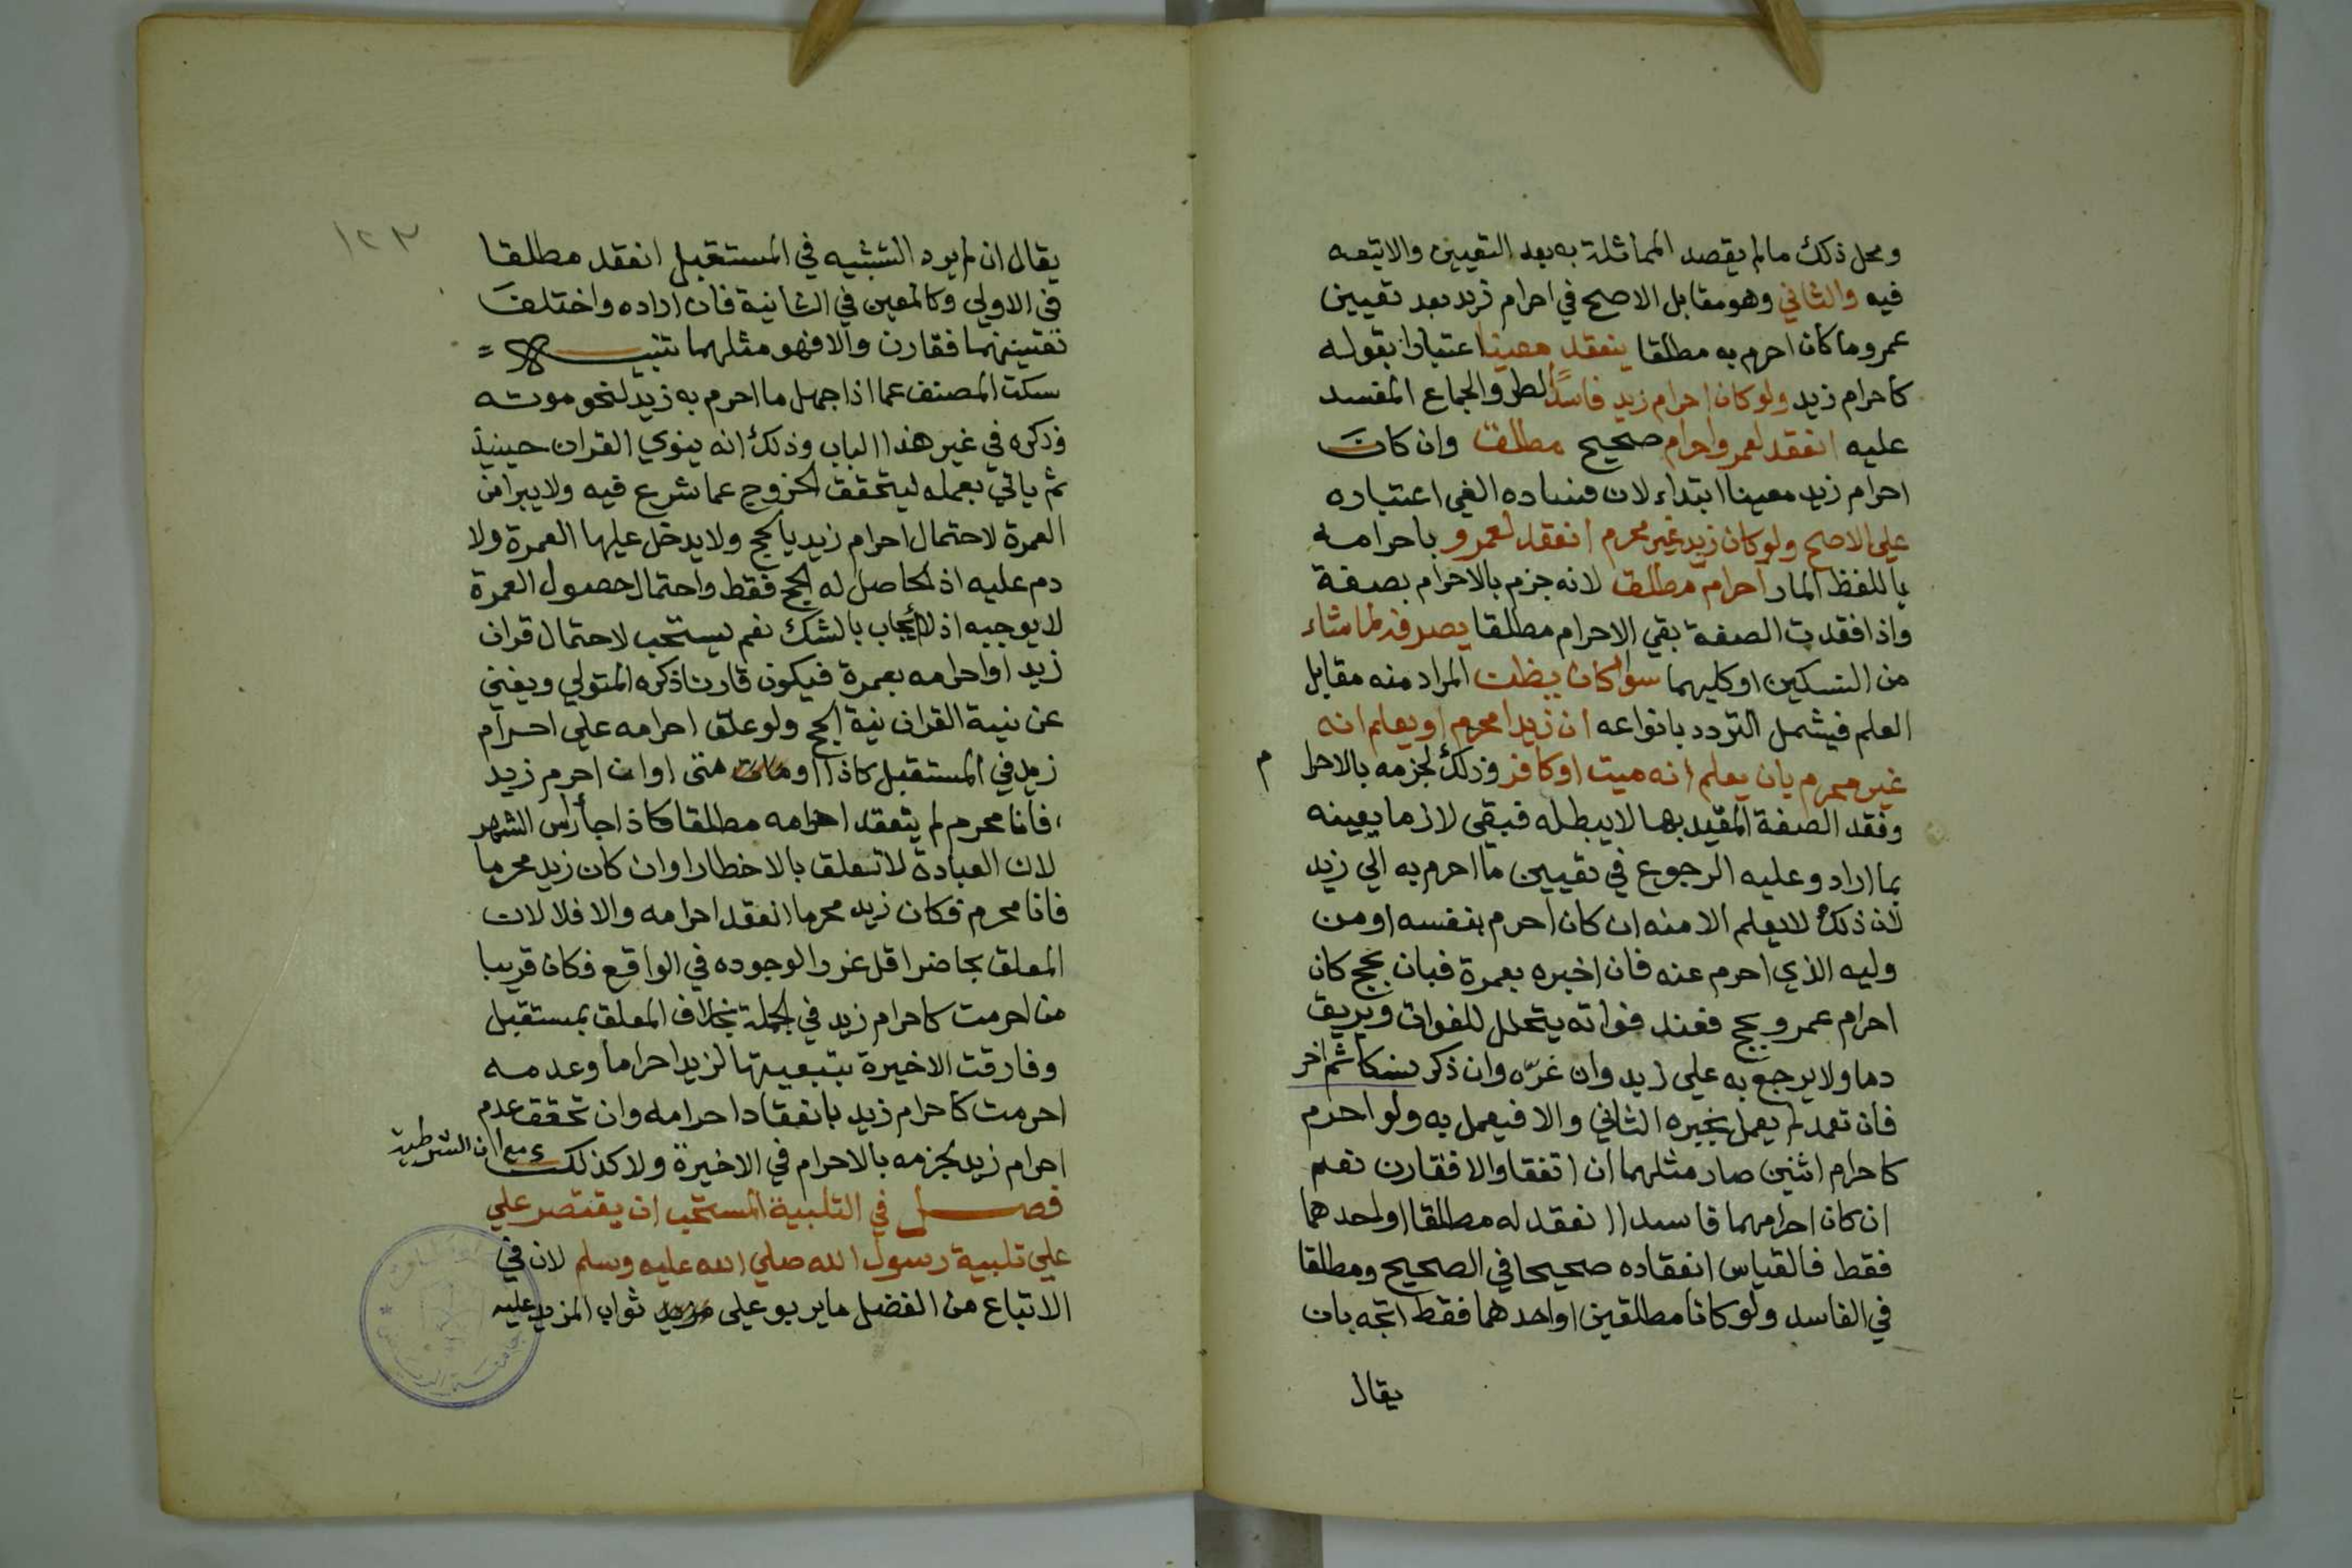 ومحل ذلك مالم يقصد المماثلة به بعد التعيين والايتبعه
فيه والثاني وهو مقابل الاصح في احرام زيد بعد تعيين
عمرو ما كان احرم به مطلقا ينعقد معينا اعتبارا بقوله
كاحرام زيد ولو كان احرام زيد فاسدا لطرو الجماع المفسد
عليه انعقد لعمرو احرام صحيح مطلق وان كان
احرام زيد معينا ابتداء لان فساده الغي اعتباره
علي الاصح ولو كان زيد غير محرم انعقد لعمرو باحرامه
باللفظ المار احرام مطلق لانه جزم بالاحرام بصفة
واذا فقدت الصفة بقي الاحرام مطلقا يصرفه لما شاء
من النسكين او كليهما سوا كان يظن المراد منه مقابل
العلم فيشمل التردد بانواعه ان زيدا محرم او يعلم انه
غير محرم بان يعلم انه ميت او كافر وذلك لجزمه بالاحرام
وفقد الصفة المقيد بها لا يبطله فبقي لازما يعينه
بما اراد وعليه الرجوع في تعيين ما احرم به الي زيد
لان ذلك لا يعلم الا منه ان كان احرم بنفسه او من
وليه الذي احرم عنه فان اخبره بعمرة فبان بحج كان
احرام عمرو بحج فعند فواته يتحلل للفوات ويريق
دما ولا يرجع به علي زيد وان غرّه وان ذكر نسكا ثم اخر
فان تعمد لم يعمل بخبره الثاني والا فيعمل به ولو احرم
كاحرام اثنين صار مثلهما ان اتفقا والا فقارن نعم
ان كان احرامهما فاسدا انعقد له مطلقا او احدهما
فقط فالقياس انعقاده صحيحا في الصحيح ومطلقا
في الفاسد ولو كانا مطلقين او احدهما فقط اتجه بان
يقال
١٢٣
يقال ان لم يرد التشبيه في المستقبل انعقد مطلقا
في الاولي وكالمعين في الثانية فان اراده واختلف
تعيينهما فقارن والا فهو مثلهما تنبيه
سكت المصنف عما اذا جهل ما احرم به زيد لنحو موته
وذكره في غير هذا الباب وذلك انه ينوي القران حينيذ
ثم ياتي بعمله ليتحقق الخروج عما شرع فيه ولا يبرا من
العمرة لاحتمال احرام زيد بالحج ولا يدخل عليها العمرة ولا
دم عليه اذ الحاصل له الحج فقط واحتمال حصول العمرة
لا يوجبه اذ لا ايجاب بالشك نعم يستحب لاحتمال قران
زيد او احرامه بعمرة فيكون قارنا ذكره المتولي ويغني
عن نية القران نية الحج ولو علق احرامه علي احرام
زيد في المستقبل كاذا او متى او ان احرم زيد
فانا محرم لم ينعقد احرامه مطلقا كاذا جا راس الشهر
لان العبادة لا تتعلق بالاخطار او ان كان زيد محرما
فانا محرم فكان زيد محرما انعقد احرامه والا فلا لان
المعلق بحاضر اقل غررا لوجوده في الواقع فكان قريبا
من احرمت كاحرام زيد في الجملة بخلاف المعلق بمستقبل
وفارقت الاخيرة بتبعيتها لزيد احراما وعدمه
احرمت كاحرام زيد بانعقاد احرامه وان تحقق عدم
احرام زيد لجزمه بالاحرام في الاخيرة ولا كذلك مع ان الشرطية
فصل في التلبية المستحب ان يقتصر علي
علي تلبية رسول الله صلي الله عليه وسلم لان في
الاتباع من الفضل ما يربو علي ثواب المزيد عليه